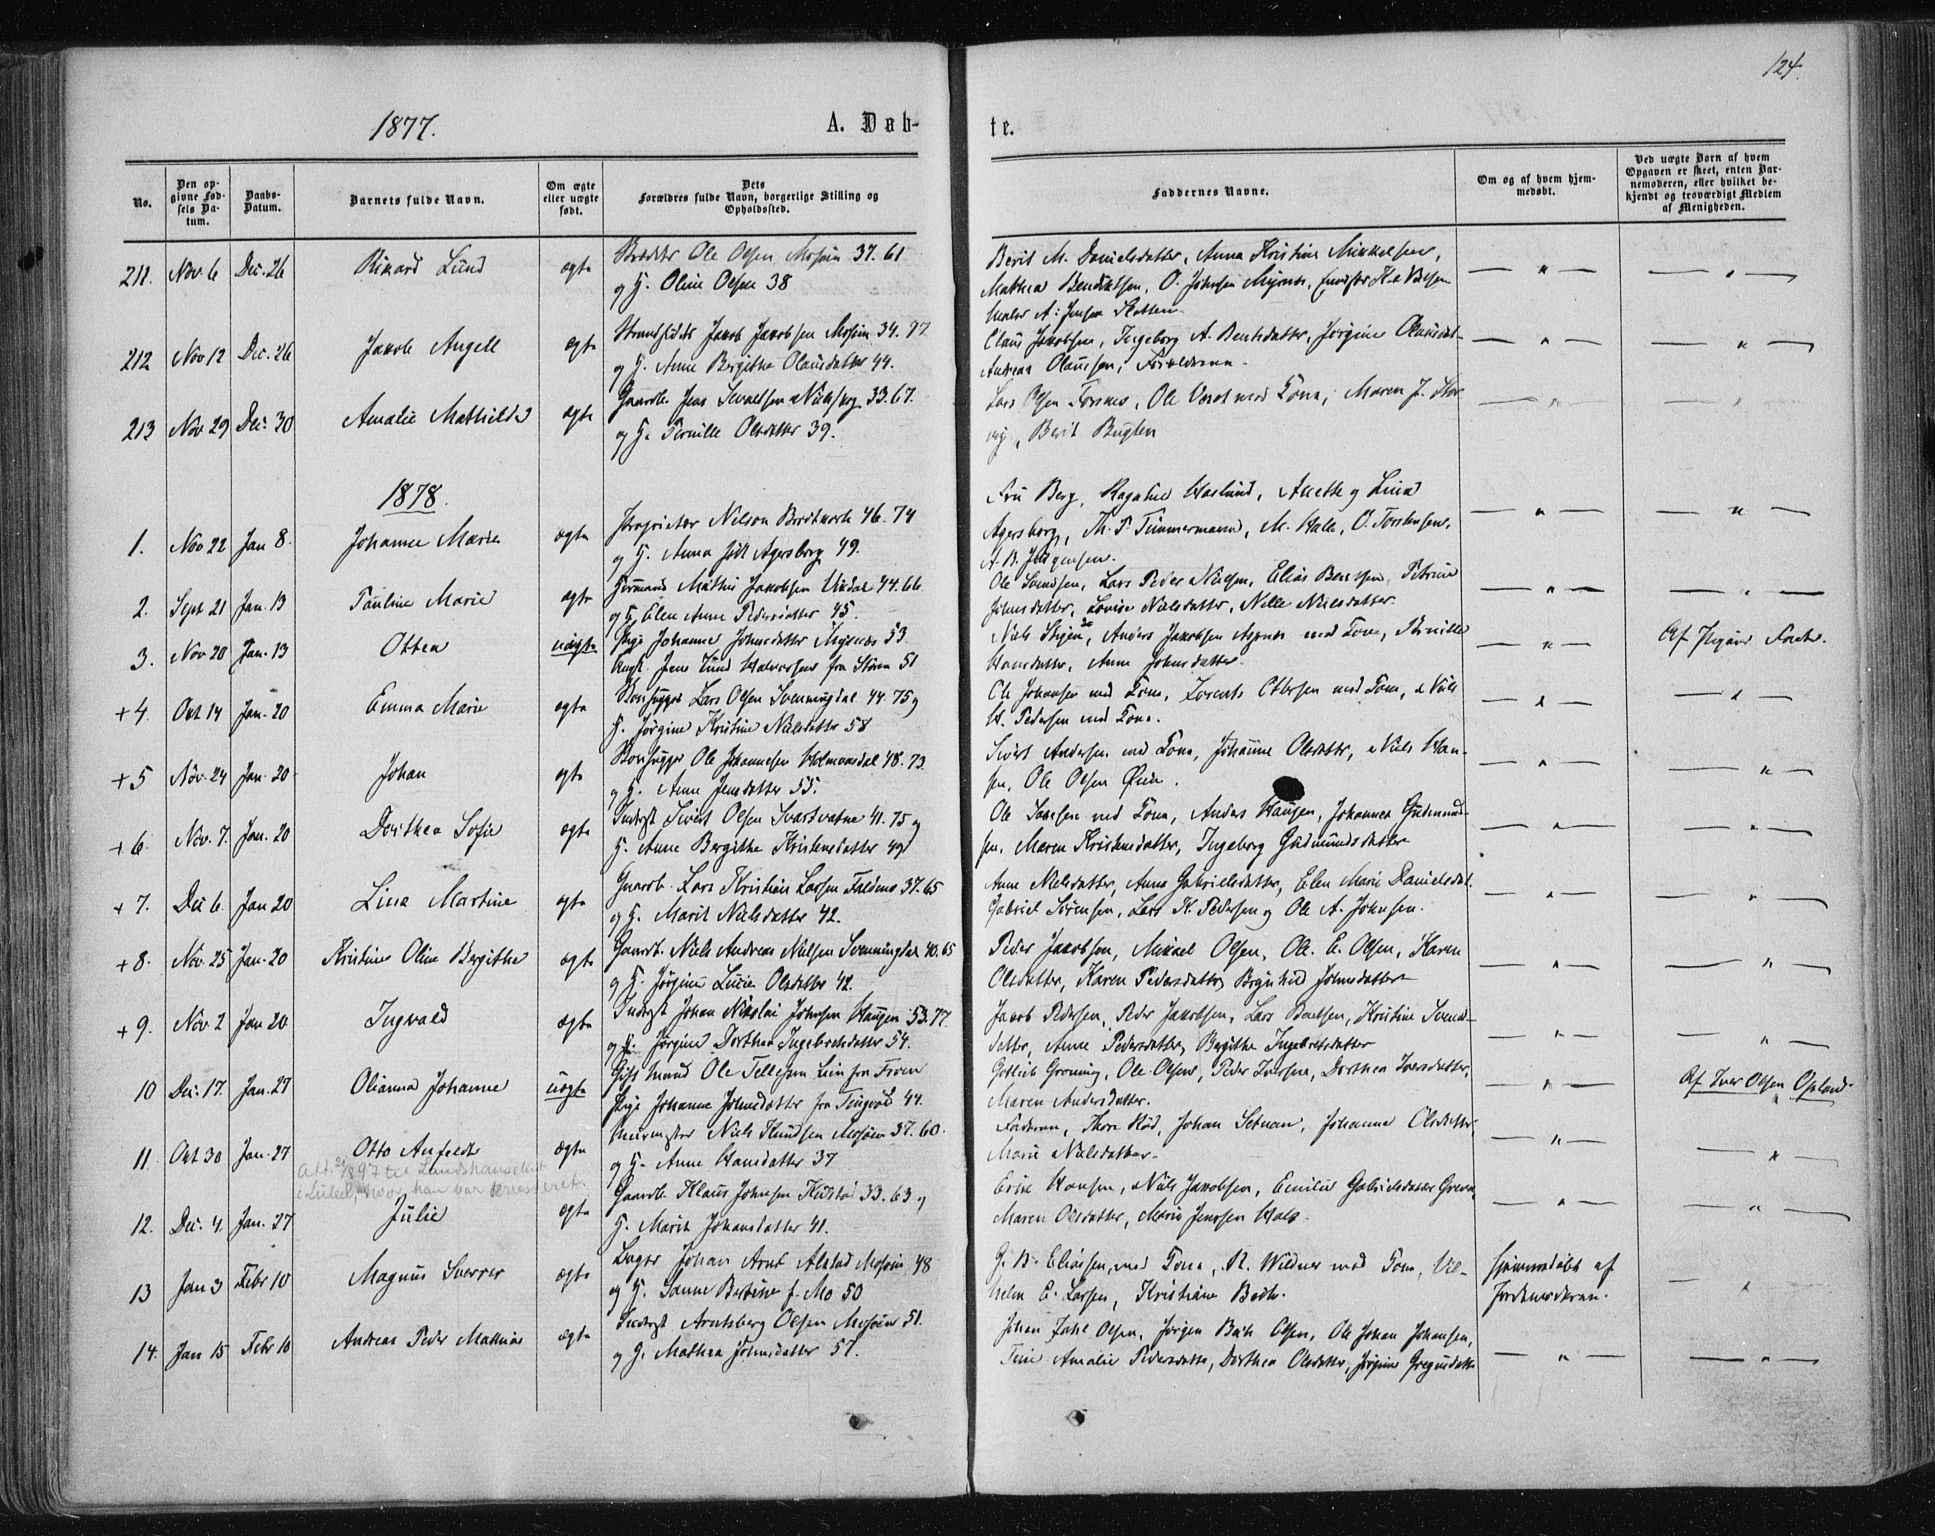 124.
1877.
A. Døb-
te.
No.
Den op-
givne Fød-
sels Da-
tum.
Daabs-
Datum.
Barnets fulde Navn.
Om ægte
eller uægte
født.
Dets
Forældres fulde Navn, borgerlige Stilling og
Opholdssted.
Faddernes Navne.
Om og af hvem hjem-
medøbt.
Ved uægte Børn af hvem
Opgaven er skeet, enten Bar-
nemoderen, eller hvilket be-
kjendt og troværdigt Medlem
af Menigheden.
211. Nov 6 Dec. 26 Rikard Lund ægte Ole Olsen Mosjøen 37. 61
og H. Oline Olsen 38
Berit M. Danielsdatter, Anna Kristine Mikkelsen,
Mathea Bendiktsen, O. Johnsen
Maler A: Jensen
212 Nov 12 Dec. 26 Jakob Angell ægte Strandsidder Jakob Jakobsen Mosjøen 34. 77
og H. Anne Birgithe Olausdatter 44.
Claus Jakobsen, Ingeborg A. Bentsdatter, Jørgine Olausdat-
Andreas Olaussen, Forældrene
213 Nov 29 Dec. 30 Amalie Mathilde ægte Gaardb. Jens 33. 67.
og H. Pernille Olsdatter 39.
Lars Olsen Forsmo, Ole med Kona, Maren J.
Berit
1878.
1. Nov 22 Jan 8. Johanne Marie ægte Proprietær Nilson 46. 74
og H. Anna født Agersborg 49.
Fru Berg, Haslund, Anette og Lina
Agersborg, Th. P. Timmermann, M. Halle, O. Torstensen,
A. B. Jürgensen.
2. Sept 21 Jan. 13 Pauline Marie ægte Mathis Jakobsen Undal 44. 66
og H. Elen Anne Pedersdatter 45.
Ole Svendsen, Lars Peder Nielsen, Elias Bentsen, Petrine
Johnsdatter, Lovise Nielsdatter, Nille Nielsdatter.
3. Nov 20 Jan. 13 Ottea uægte Pige Johanne Johnsdatter 53.
Ungk. Jens Lund Halvorsen fra Støren 51
Niels Stigen, Anders Jakobsen Aspnes med Kone, Pernille
Hansdatter, Anne Johnsdatter.
+4. Okt 14 Jan. 20 Emma Marie ægte Lars Olsen Svenningdal 44. 75 og
H. Jørgine Kristine Nielsdatter 58
Ole Johansen med Kone, Lorents Ottersen med Kone, Niels
H. Pedersen med Kona.
+5 Nov. 24 Jan. 20 Johan ægte Ole Johannesen Holmvasdal 48. 73.
og H. Anne Jensdatter 55.
Sivert Andersen med Kona, Johanne Olsdatter, Niels Han-
sen, Ole Olsen Øien.
+6. Nov. 7. Jan. 20 Dorthea Sofie ægte Inderst Sivert Olsen Svartvatne 41. 75 og
H. Anne Bergithe Kristensdatter 49
Ole med Kona, Anders Haugen, Johannes Gudmund-
sen, Maren Kristensdatter, Ingeborg Gudmundsdatter
+7. Dec 6. Jan 20 Lina Martine ægte Gaardb. Lars Kristian Larsen Faldmo 37. 65
og H. Marit Nielsdatter 42.
Anne Nielsdatter, Anna Gabrielsdatter, Elen Marie Danielsdat.
Gabriel Sørensen, Lars K. Pedersen og Ole A. Johnsen.
+8. Nov. 25 Jan. 20 Kristine Oline Bergithe ægte Gaardb. Niels Andreas Nielsen Svenningdal 40. 65
og H. Jørgine Lucie Olsdatter 42.
Peder Jakobsen, Mikael Olsen, Ole E. Olsen, Karen
Olsdatter, Karen Pedersdatter, Johnsdatter
+9. Nov 2 Jan 20 Ingvald ægte Inderst Johan Nikolai Johnsen Haugen 53. 77.
og H. Jørgine Dorthea Ingebretsdatter 54.
Jakob Pedersen, Peder Jakobsen, Lars Bentsen, Kristine Svends-
datter, Anne Pedersdatter, Bergithe Ingebretsdatter
10 Dec. 17. Jan. 27 Olianna Johanne uægte Gift Mand Ole Tellefsen Lien fra
Pige Johanne Johnsdatter fra Tingvold 44.
Gotlieb Grønning, Ole Olsen, Peder Iversen, Dorthea Iversdatter,
Maren Andersdatter.
Af Iver Olsen Opland
11. Okt 30 Jan. 27 Otto Anfeldt ægte Murmester Niels Knudsen Mosjøen 37. 60.
og H. Anne Hansdatter 37
Faderen, Thore Rød, Johan Setnan, Johanne Olsdatter,
Marie Nielsdatter
12. Dec. 4 Jan. 27 Julie ægte Gaardb. Klaus Johnsen 33. 63 og
H. Marit Johansdatter 41.
Erik Hansen, Niels Jakobsen, Emilie Gabrielsdatter
Maren Olsdatter, Marie Jensen Hals.
13 Jan 3 Febr 10 Magnus Sverrer ægte Bager Johan Arnt Alstad Mosjøen 48
og H. Sanne f. Mo 50
G. B. Eliasen, med Kona, R. Wildner med Kone, Vil-
helm E. Larsen, Kristiane Bech.
hjemmedøbt af
Jordemoderen.
14. Jan 15 Febr 10 Andreas Peder Mathias ægte Inderst Arntsberg Olsen Mosjøen 51.
og H. Mathea Johnsdatter 57.
Johan Olsen, Jørgen Bech Olsen, Ole Johan Johansen,
Trine Amalie Pedersdatter, Dorthea Olsdatter, Jørgine Gregusdatter